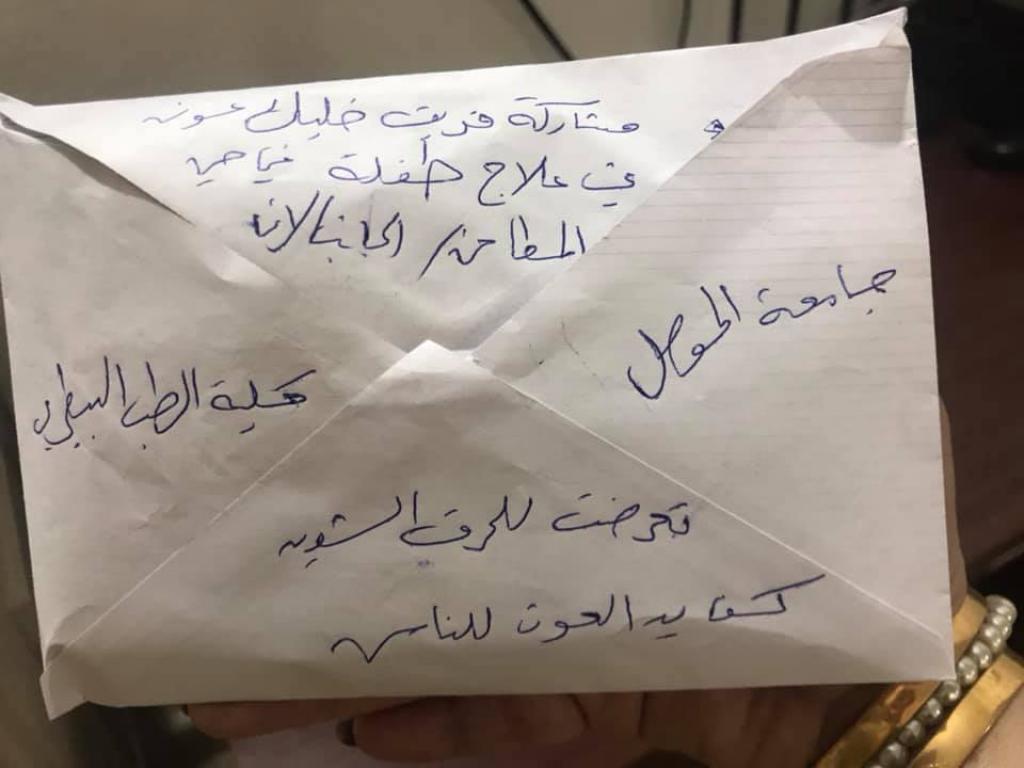 مشاركة فريق خليك عون
في علاج طفلة في حي
المطاحن / الجانب الايمن
جامعة الموصل
كلية الطب البيطري
تعرضت للحرق الشديد
كف يد العون للناس